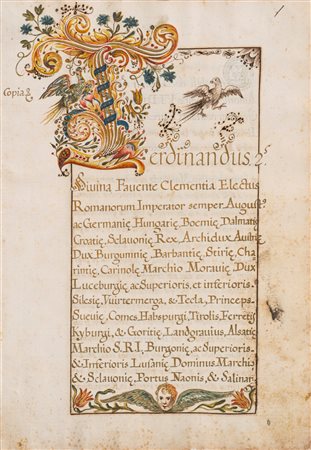 Copia
Ferdinandus 2.
Divina Favente Clementia Electus
Romanorum Imperator semper August
ac Germanię, Hungarię, Boemię, Dalmatię
Croatię, Sclavonię, Rex, Archidux, Austrię
Dux, Burgumnię, Barbantię, Stirię, Cha-
rintię, Carinolę, Marchio Moravię, Dux
Luceburgię, ac Superioris, et inferioris
Silesię, Vuirtermerga, & Tecla, Princeps
Suevię, Comes, Habspurgi, Tirolis, Ferretis
Kyburgi, & Goritię, Landgravius, Alsatię
Marchio S.R.I, Burgonię, ac Superioris
& Inferioris Lusanię, Dominus, Marchię
& Sclavonię, Portus Naonis, & Salinar